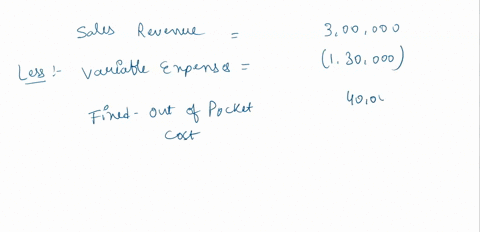 Sales Revenue = 3,00,000
Less :- Variable Expenses = (1,30,000)
Fixed - out of Pocket 40,00
Cost